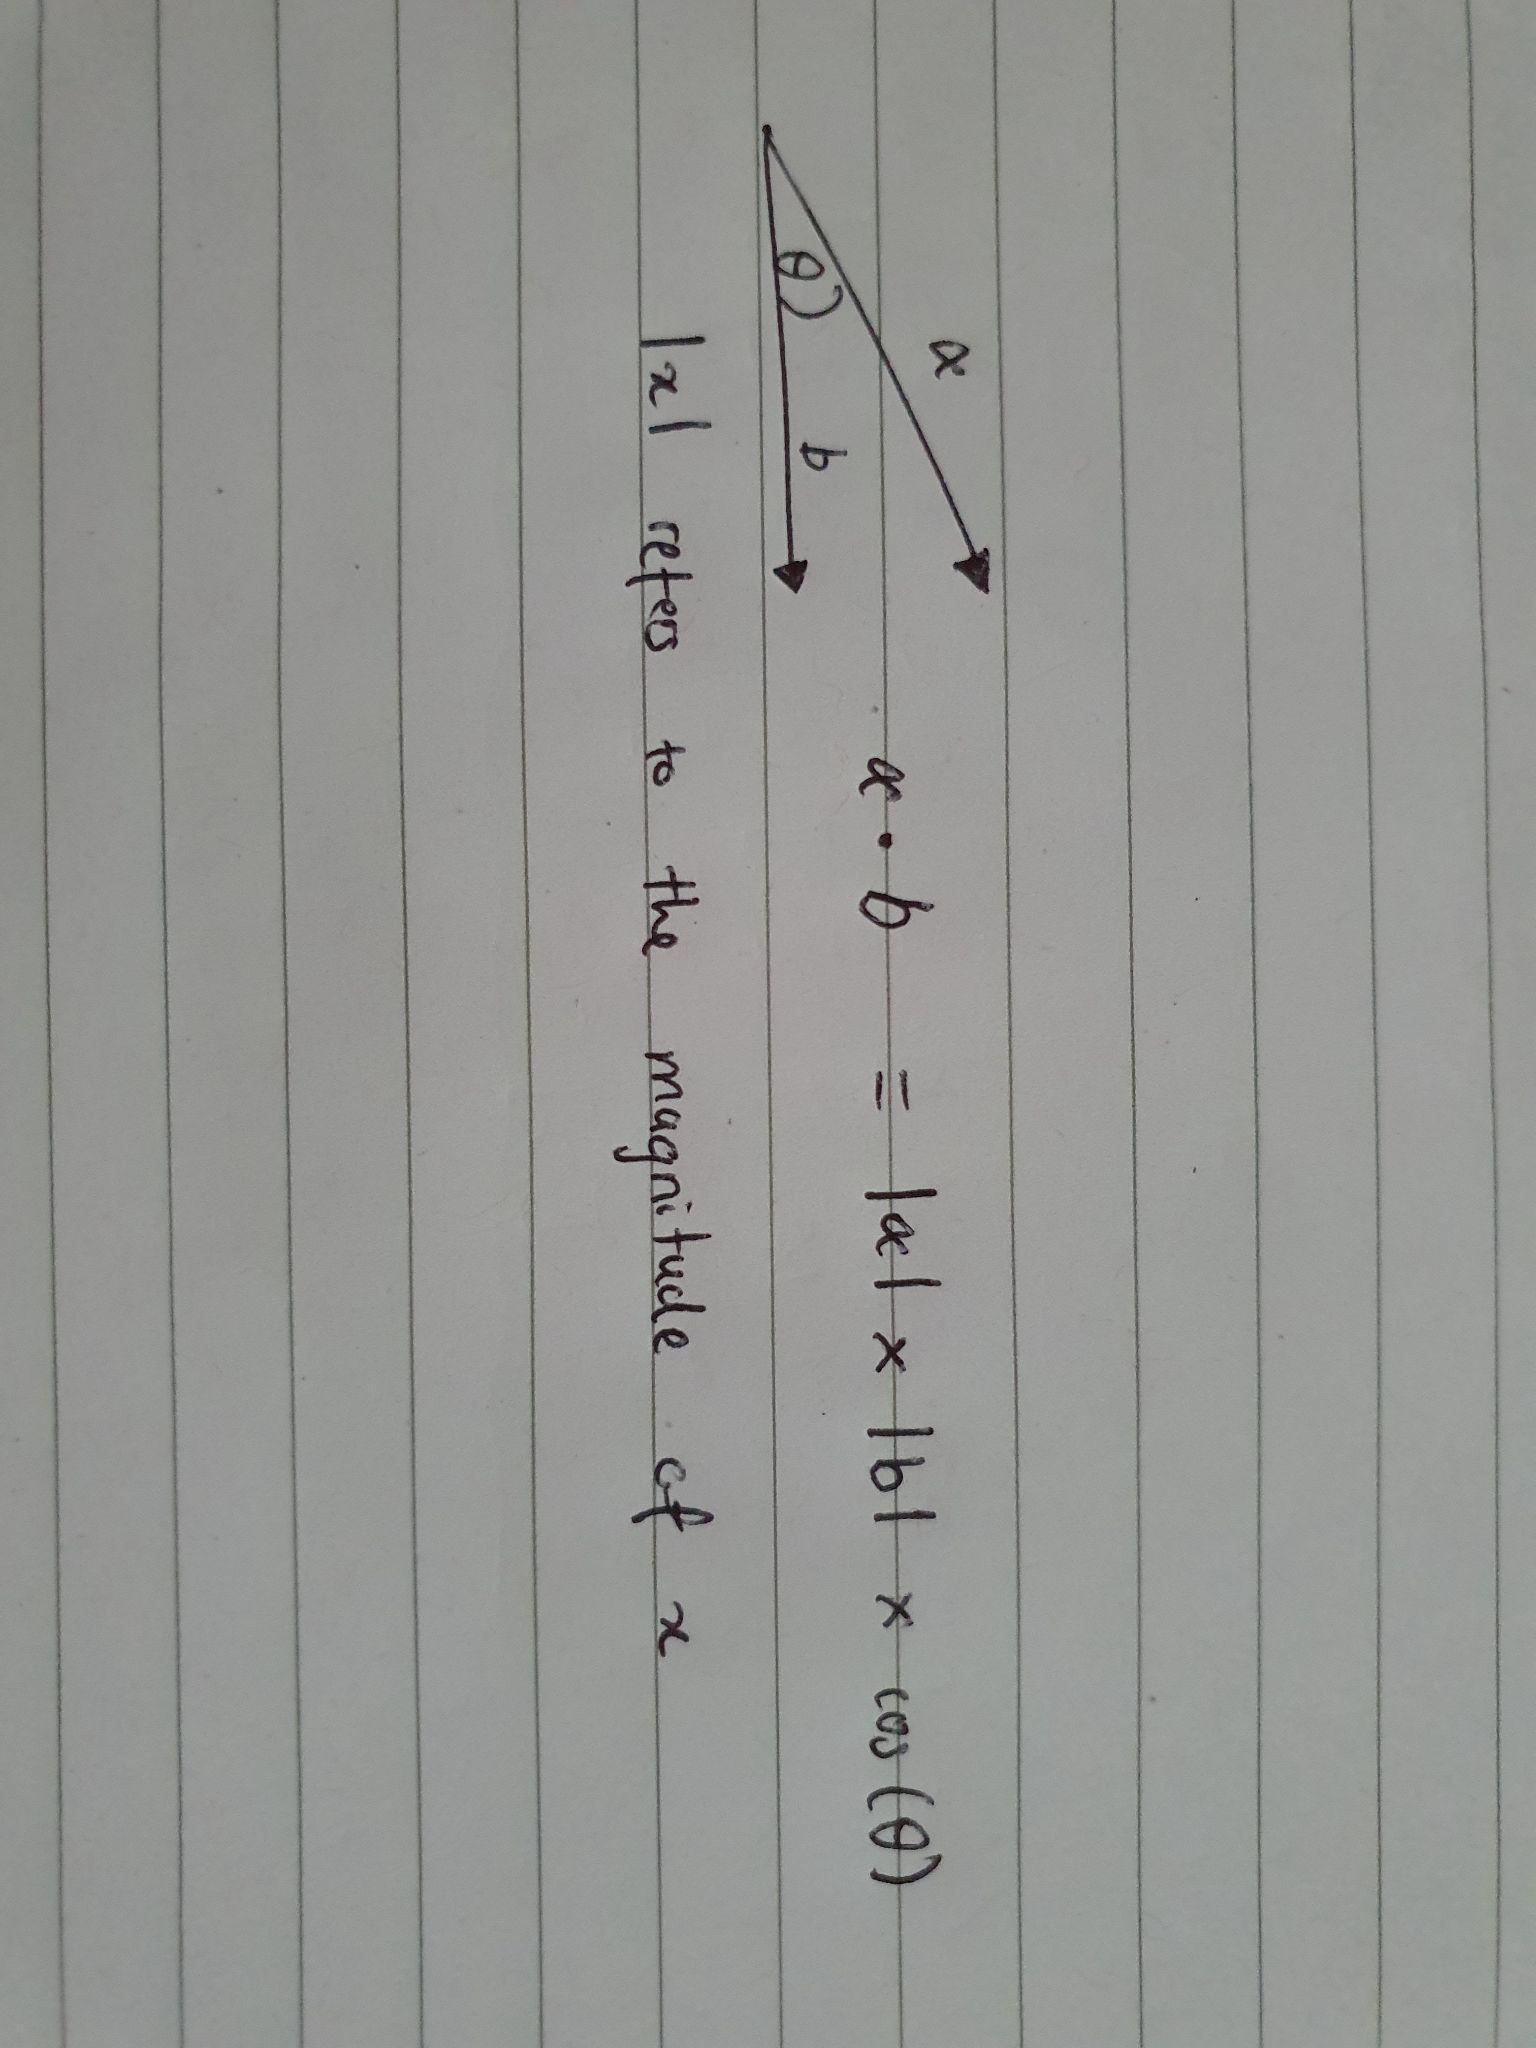 a
θ
b
a · b = |a| x |b| x cos(θ)
|x| refers to the magnitude of x